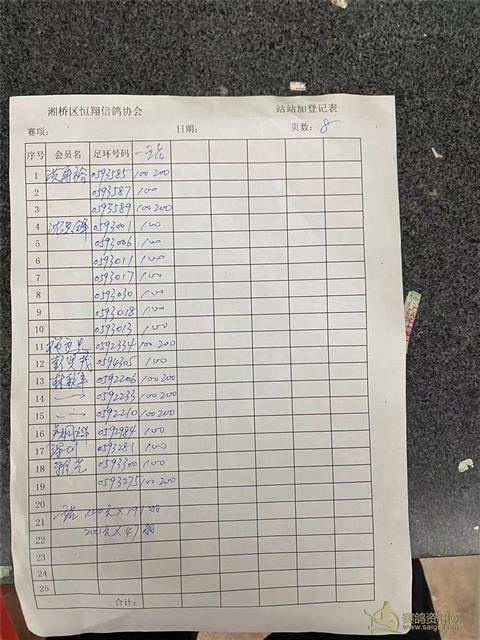 湘桥区恒翔信鸽协会 站站加登记表
赛项: 日期: 页数: 8
序号 会员名 足环号码 一站
1 0593585 100 200
2 0593587 100
3 0593589 100 200
4 0593001 100
5 0593006 100
6 0593011 100
7 0593017 100
8 0593030 100
9 0593018 100
10 0593013 100
11 0592334 100 200
12 0594305 100
13 0592206 100 200
14 0592233 100 200
15 0592210 100 200
16 0592984 100
17 0593281 100
18 0593300 100
19 0593275 100 200
20
21 一站 100元×191羽
22 200元×47羽
23
24
25
合计:
赛鸽资讯网
www.saige.com